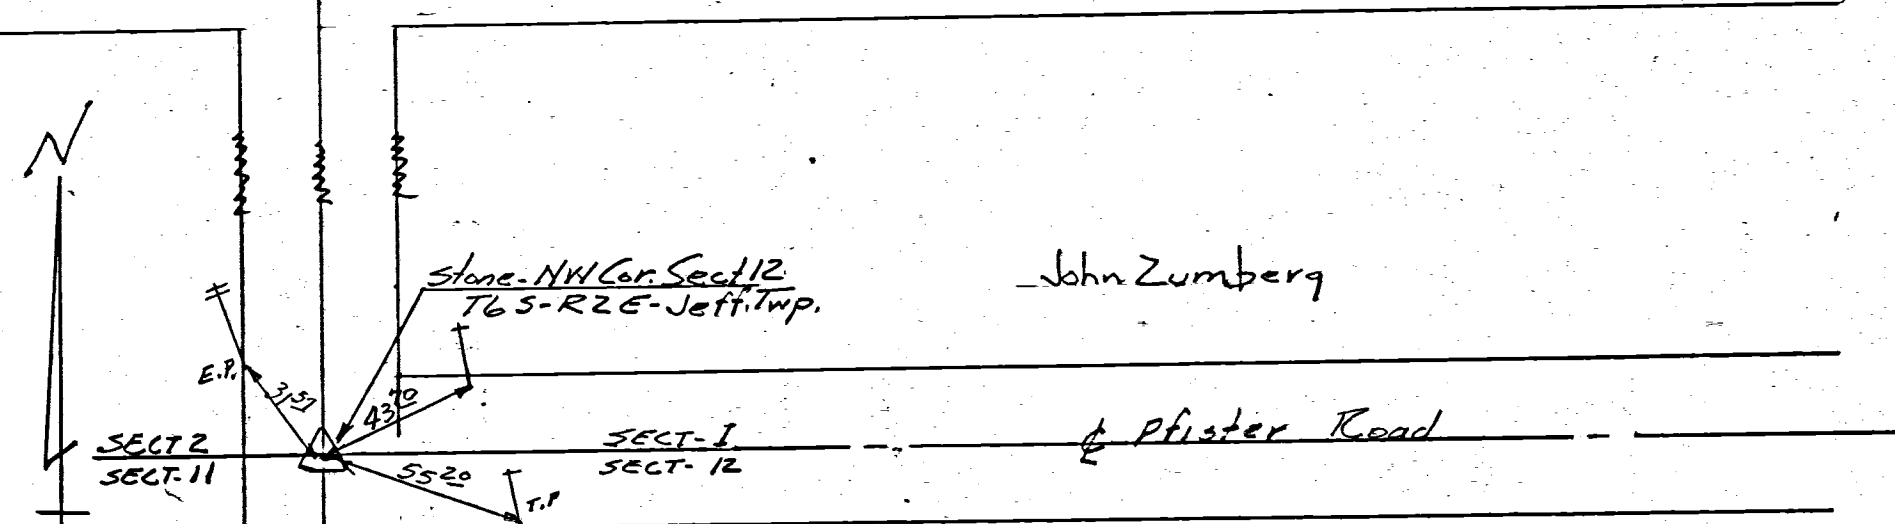 N
Stone-NW Cor. Sect 12
T6S-R2E-Jeff. Twp.
John Zumberg
E.P.
31 57
43 70
SECT 2
SECT-11
SECT-1
SECT-12
℄ Pfister Road
55 20
T.P